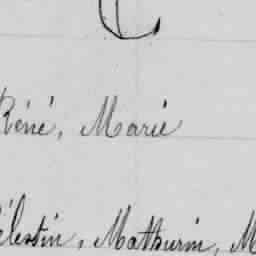 René, Marie
Célestin, Mathurin, M